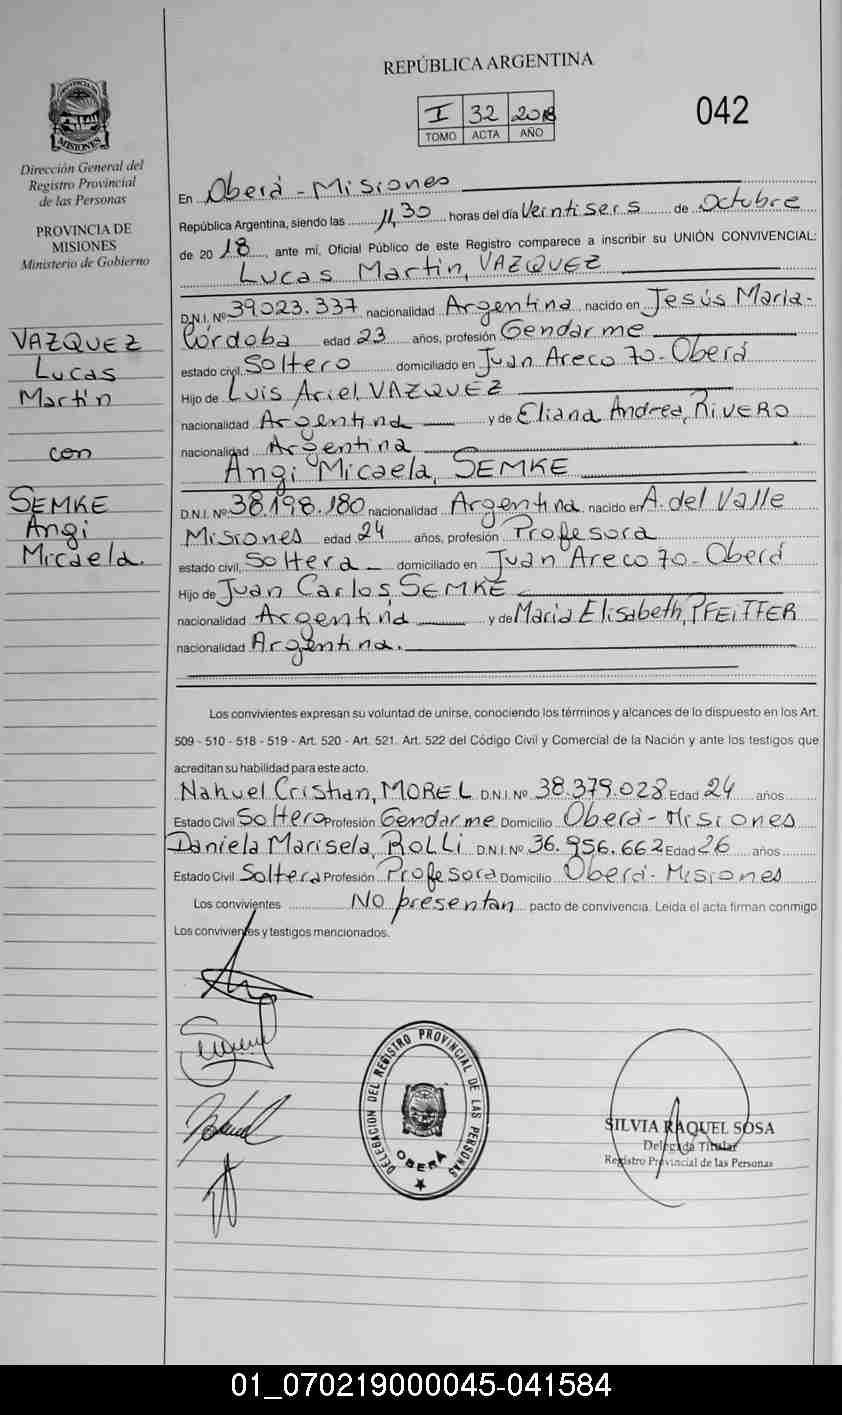 REPÚBLICA ARGENTINA
I 32 2018
TOMO ACTA AÑO
042
MISIONES
Dirección General del
Registro Provincial
de las Personas
PROVINCIA DE
MISIONES
Ministerio de Gobierno
VAZQUEZ
Lucas
Martín
con
SEMKE
Angi
Micaela.
En Oberá - Misiones
República Argentina, siendo las 11,30 horas del día Veintiseis de Octubre
de 2018, ante mí, Oficial Público de este Registro comparece a inscribir su UNIÓN CONVIVENCIAL:
Lucas Martin, VAZQUEZ
D.N.I. Nº 39.023.337 nacionalidad Argentina nacido en Jesús María -
Córdoba edad 23 años, profesión Gendarme
estado civil, Soltero domiciliado en Juan Areco 70 - Oberá
Hijo de Luis Ariel VAZQUEZ
nacionalidad Argentina y de Eliana Andrea, RIVERO
nacionalidad Argentina
Angi Micaela, SEMKE
D.N.I. Nº 38.198.180 nacionalidad Argentina nacido en A. del Valle
Misiones edad 24 años, profesión Profesora
estado civil, Soltera domiciliado en Juan Areco 70 - Oberá
Hijo de Juan Carlos, SEMKE
nacionalidad Argentina y de Maria Elisabeth, PFEIFFER
nacionalidad Argentina.
Los convivientes expresan su voluntad de unirse, conociendo los términos y alcances de lo dispuesto en los Art.
509 - 510 - 518 - 519 - Art. 520 - Art. 521. Art. 522 del Código Civil y Comercial de la Nación y ante los testigos que
acreditan su habilidad para este acto.
Nahuel Cristian, MOREL D.N.I. Nº 38.379.028 Edad 24 años
Estado Civil Soltero Profesión Gendarme Domicilio Oberá - Misiones
Daniela Marisela, ROLLI D.N.I. Nº 36.956.662 Edad 26 años
Estado Civil Soltera Profesión Profesora Domicilio Oberá - Misiones
Los convivientes No presentan pacto de convivencia. Leida el acta firman conmigo
Los convivientes y testigos mencionados.
DELEGACION DEL REGISTRO PROVINCIAL DE LAS PERSONAS
OBERÁ
SILVIA RAQUEL SOSA
Delegada Titular
Registro Provincial de las Personas
01_070219000045-041584